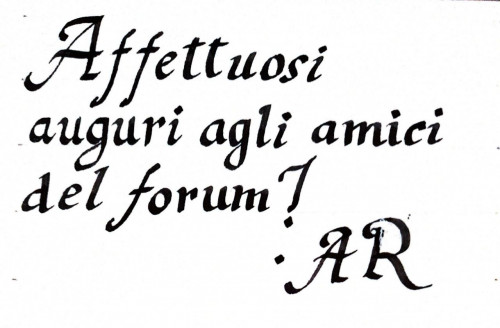 Affettuosi
auguri agli amici
del forum!
AR